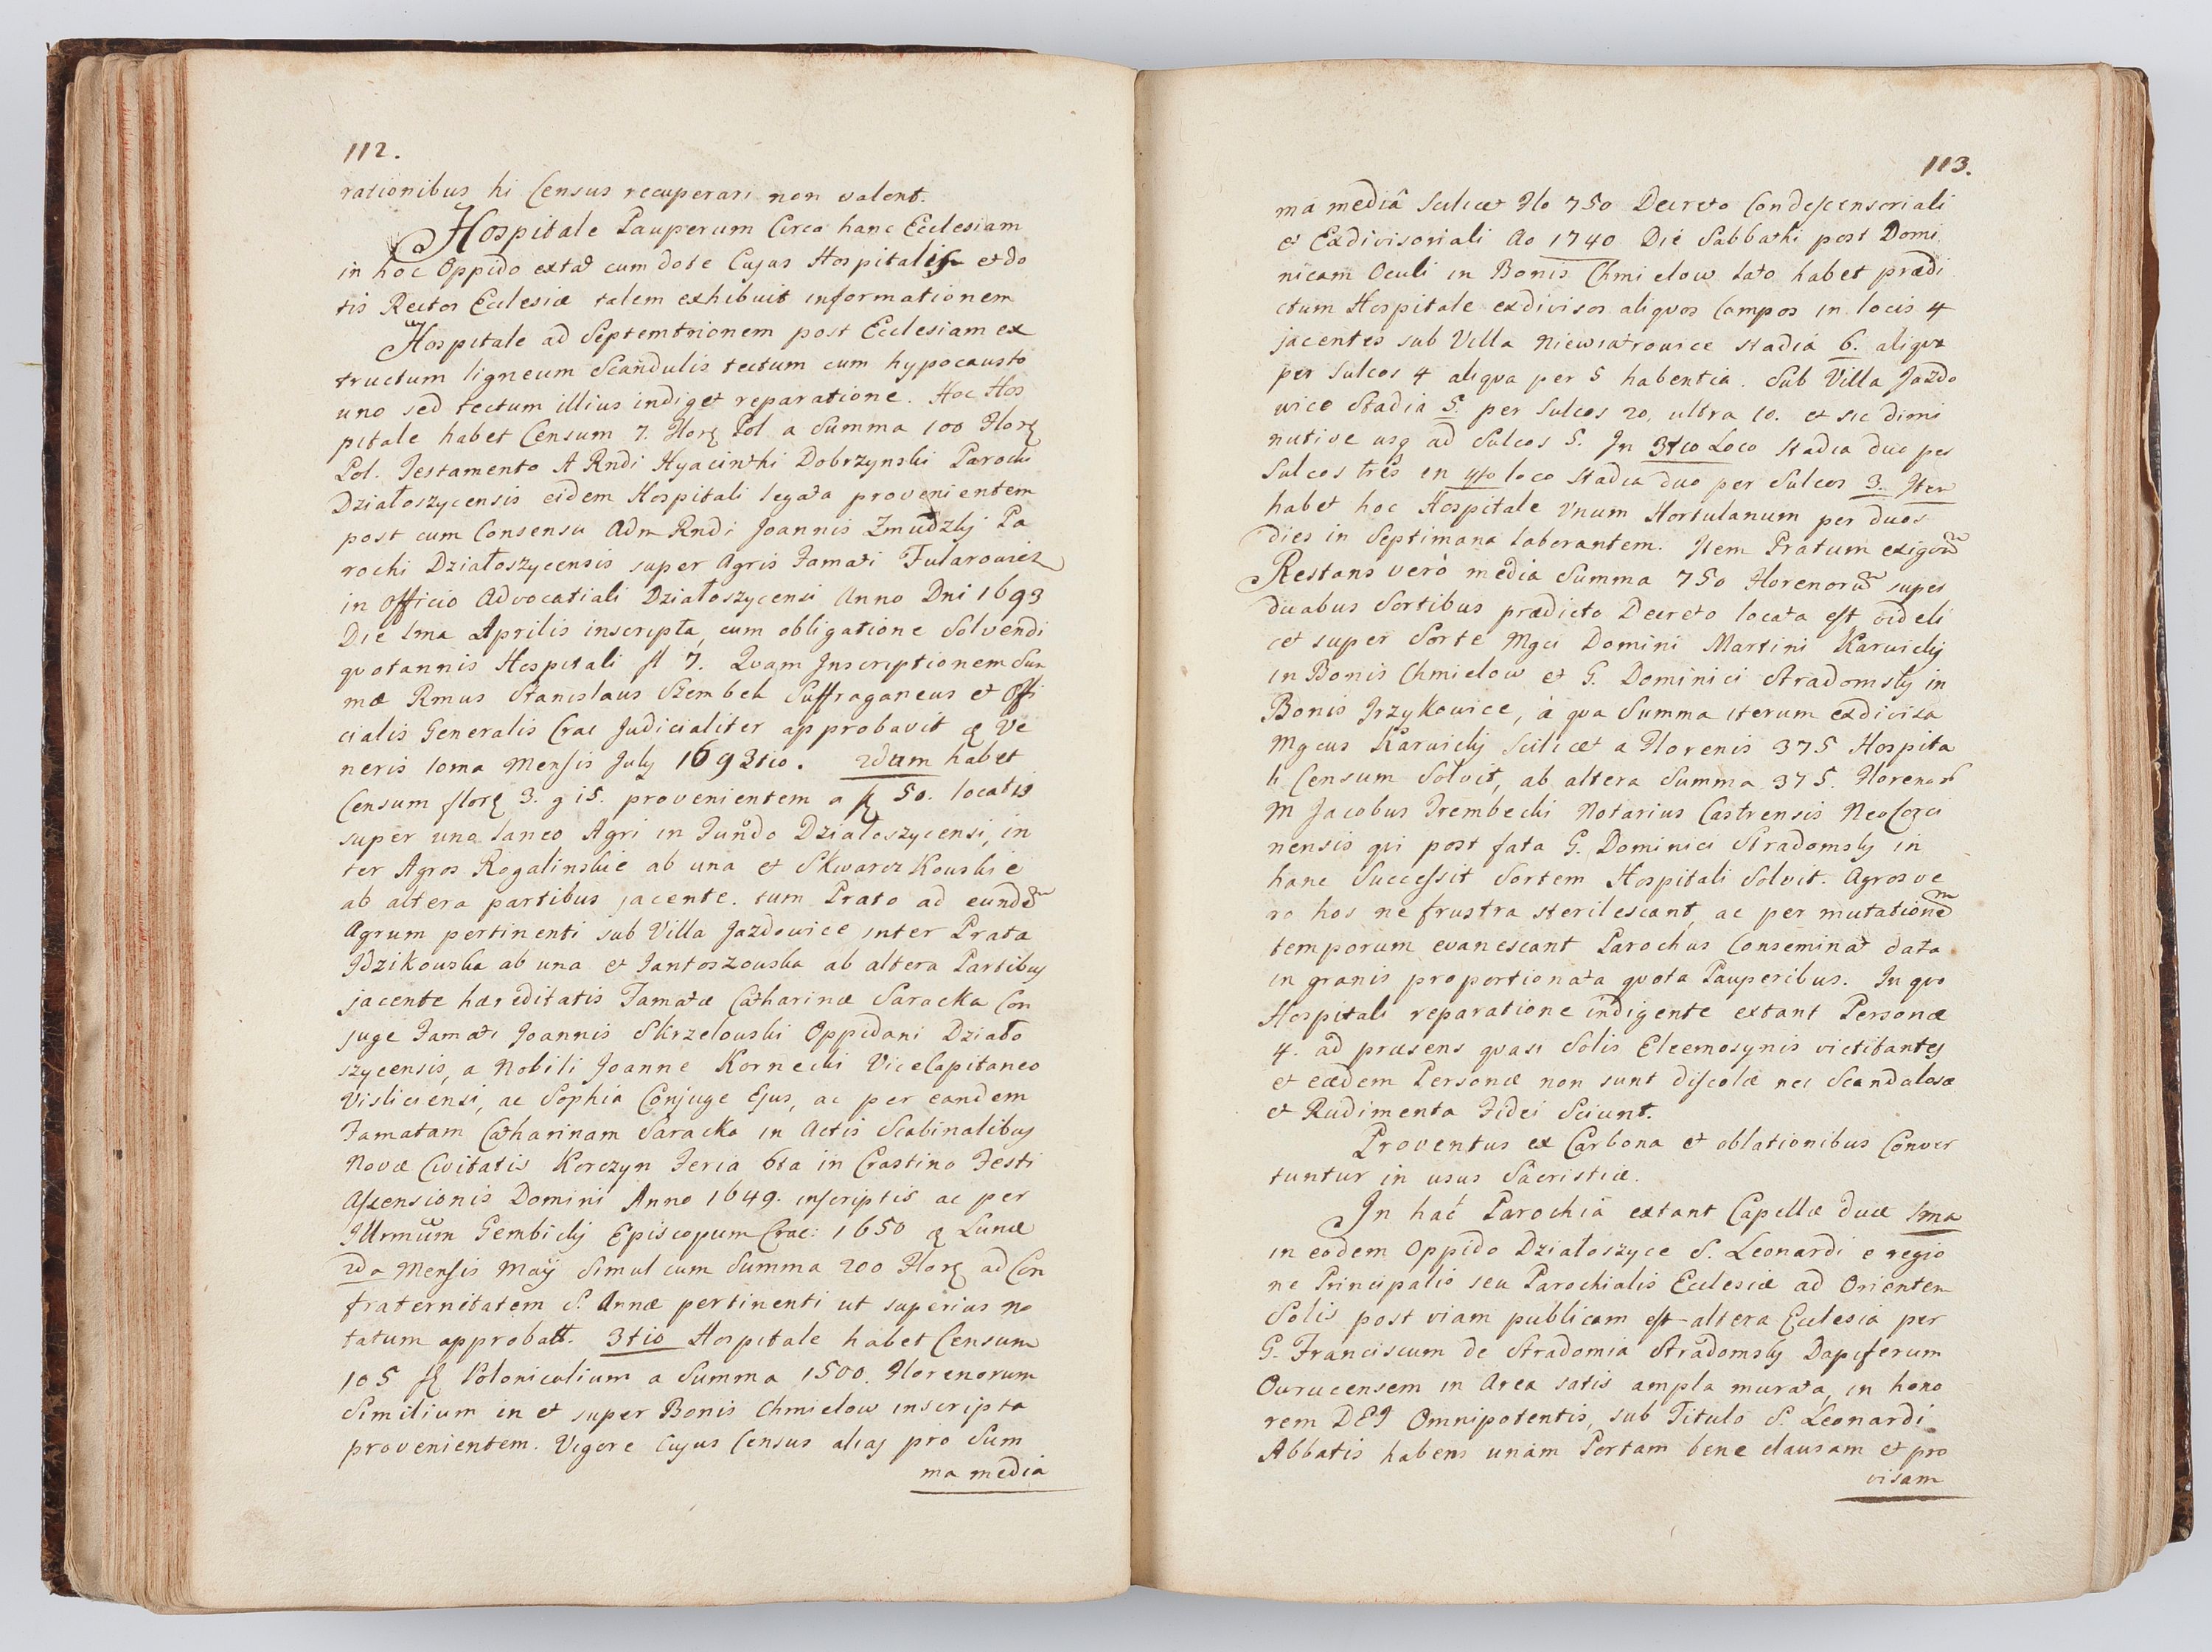 112.
rationibus hi Census recuperari non valent.
Hospitale Pauperum Circa hanc Ecclesiam
in hoc Oppido extat cum dote Cujus Hospitalis et do
tis Rector Ecclesiæ talem exhibuit informationem
Hospitale ad Septemtrionem post Ecclesiam ex
tructum ligneum Scandulis tectum cum hypocausto
uno sed tectum illius indiget reparatione. Hoc Hos
pitale habet Censum 7. Flor Pol a Summa 100 Flor
Pol. Testamento A Rndi Hyacinthi Dobrzynski Parochi
Działoszycensis eidem Hospitali legata provenientem
post cum Consensu Adm Rndi Joannis Zmudzkj Pa
rochi Działoszycensis super Agris Famati Fularowicz
in Officio Advocatiali Działoszycensi Anno Dni 1693
Die 1ma Aprilis inscripta, cum obligatione Solvendi
quotannis Hospitali fl 7. Quam Inscriptionem Sum
mæ Rmus Stanislaus Szembek Suffraganeus et Offi
cialis Generalis Crac Judicialiter approbavit Ve
neris 10ma Mensis July 1693tio. 2dum habet
Censum flor 3. g 15. provenientem a 50. locatis
super uno laneo Agri in Fundo Działoszycensi, in
ter Agros Rogalinskie ab una et Skwarczkouskie
ab altera partibus jacente. tum Prato ad eundem
Agrum pertinenti sub Villa Jazdowice inter Prata
Idzikouska ab una et Jantoszouska ab altera Partibus
jacente hæreditatis Famatæ Catharinæ Saracka Con
juge Famati Joannis Skrzelouski Oppidani Działo
szycensis, a Nobili Joanne Kornecki ViceCapitaneo
Visliciensi, ac Sophia Conjuge Ejus, ac per eandem
Famatam Catharinam Saracka in Actis Scabinalibus
Novæ Civitatis Korczyn Feria 6ta in Crastino Festi
Ascensionis Domini Anno 1649. inscriptis ac per
Illrmum Gembickj Episcopum Crac: 1650 Lunæ
2da Mensis Maÿ Simul cum Summa 200 Flor ad Con
fraternitatem S. Annæ pertinenti ut superius no
tatum approbatt. 3tio Hospitale habet Censum
105 fl Polonicalium a Summa 1500. Florenorum
Similium in et super Bonis Chmielow inscripta
provenientem. Vigore Cujus Census alias pro Sum
ma media
113.
ma mediâ Scilicet Flo 750 Decreto Condescensoriali
et Exdivisoriali Ao 1740 Die Sabbathi post Domi
nicam Oculi in Bonis Chmielow lato habet prædi
ctum Hospitale exdivisos aliquos Campos in locis 4
jacentes sub Villa Niewiatrowice stadia 6. aliqua
per Sulcos 4 aliqva per 5 habentia. Sub Villa Jazdo
wice Stadia 5. per Sulcos 20, ultra 10. et sic dimi
nutive usq ad Sulcos 5. In 3tio Loco Stadia duo per
Sulcos tres en 4to loco Stadia duo per Sulcos 3. Item
habet hoc Hospitale Unum Hortulanum per duos
dies in Septimana laborantem. Item Pratum exiguum
Restans verò media Summa 750 Florenorum super
duabus Sortibus prædicto Decreto locata est videli
cet super Sorte Mgci Domini Martini Karwickj
in Bonis Chmielow et G. Dominici Stradomskj in
Bonis Jrzykowice, à qva Summa iterum exdivisa
Mgcus Karwickj Scilicet a Florenis 375 Hospita
li Censum Solvit, ab altera Summa 375. Florenor
M Jacobus Trembecki Notarius Castrensis NeoCorci
nensis qvi post fata G. Dominici Stradomskj in
hanc Successit Sortem Hospitali Solvit. Agros ve
ro hos ne frustra sterilescant, ac per mutationem
temporum evanescant Parochus Conseminat data
in granis proportionata qvota Pauperibus. In qvo
Hospitali reparatione indigente extant Personæ
4. ad præsens qvasi Solis Eleemosynis victitantes
et eædem Personæ non sunt discolæ nec Scandalosæ
et Rudimenta Fidei Sciunt.
Proventus ex Carbona et oblationibus Conver
tuntur in usus Sacristiæ.
In hac Parochiâ extant Capellæ duæ 1ma
in eodem Oppido Działoszyce S. Leonardi e regio
ne Principalis seu Parochialis Ecclesiæ ad Orientem
Solis post viam publicam est altera Ecclesia per
G. Franciscum de Stradomia Stradomskj Dapiferum
Ourucensem in Area satis ampla murata, in hono
rem DEI Omnipotentis, sub Titulo S. Leonardi
Abbatis habens unam Portam bene clausam et pro
visam